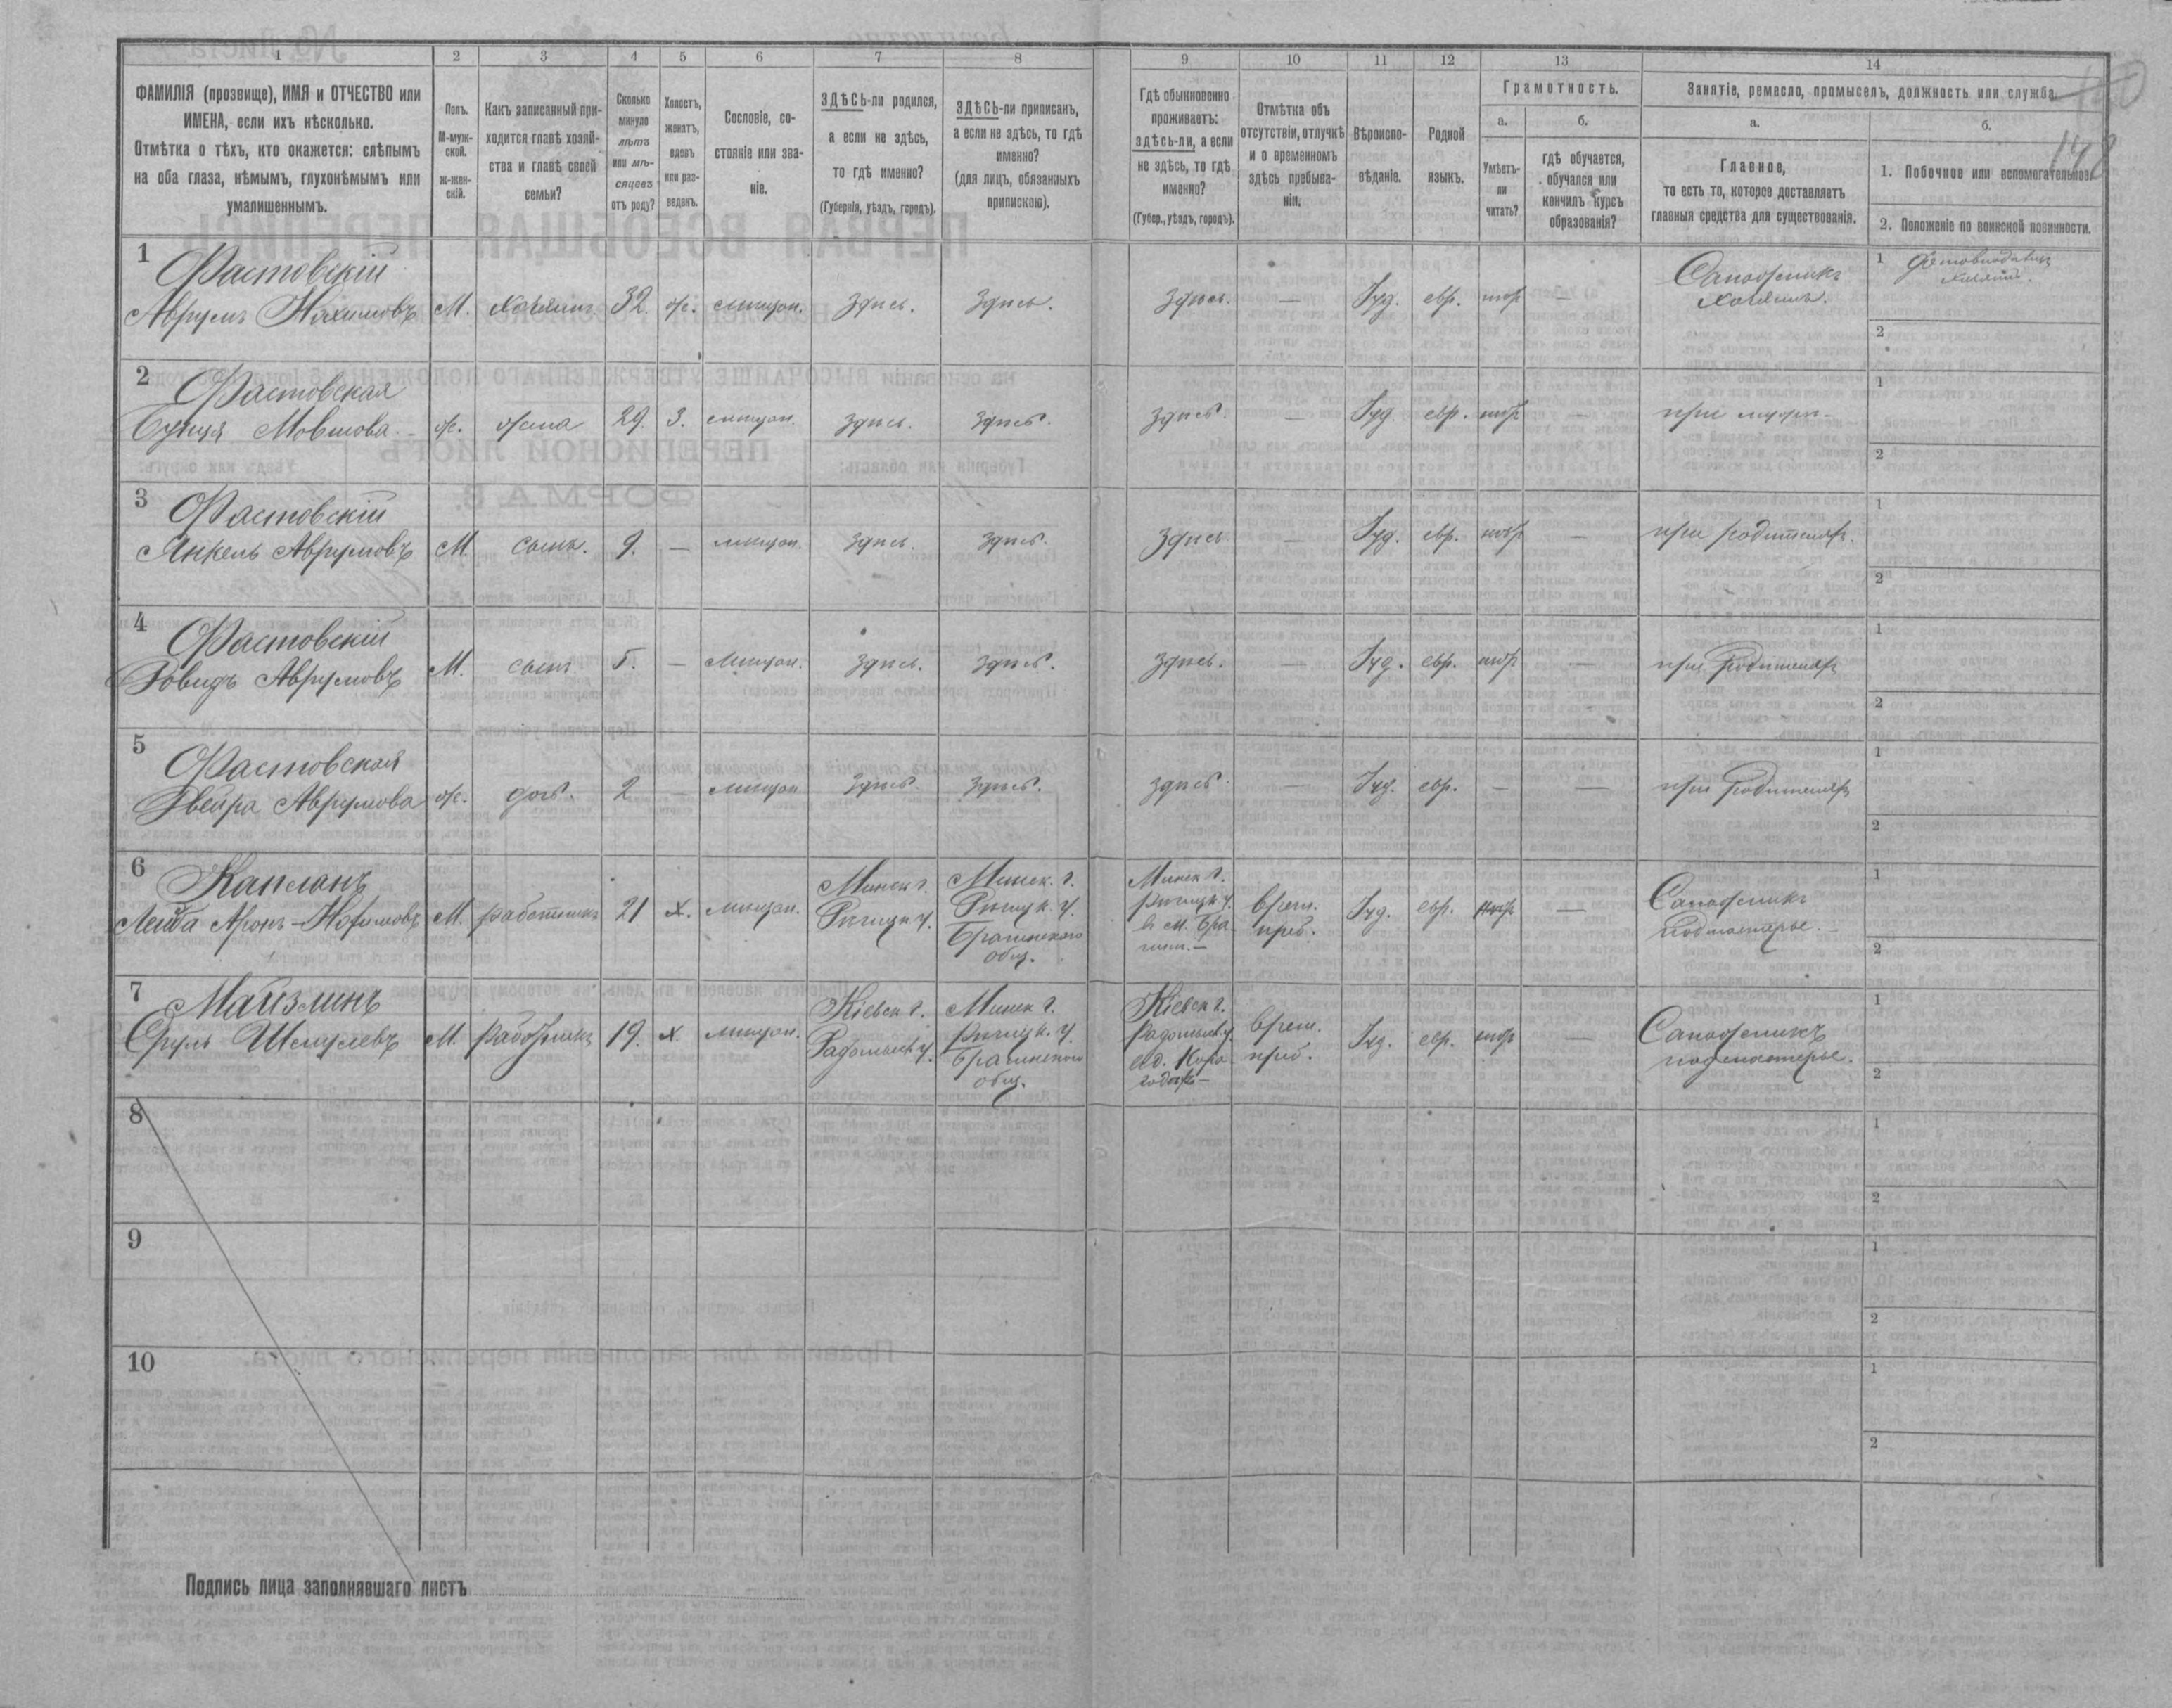 1 2 3 4 5 6 7 8 9 10 11 12 13 14
ФАМИЛІЯ (прозвище), ИМЯ и ОТЧЕСТВО или
ИМЕНА, если ихъ нѣсколько.
Отмѣтка о тѣхъ, кто окажется: слѣпымъ
на оба глаза, нѣмымъ, глухонѣмымъ или
умалишеннымъ.
Полъ.
М-муж-
ской.
Ж-жен-
скій.
Какъ записанный при-
ходится главѣ хозяй-
ства и главѣ своей
семьи?
Сколько
минуло
лѣтъ
или мѣ-
сяцевъ
отъ роду?
Холостъ,
женатъ,
вдовъ
или раз-
веденъ.
Сословіе, со-
стояніе или зва-
ніе.
ЗДѢСЬ-ли родился,
а если не здѣсь,
то гдѣ именно?
(Губернія, уѣздъ, городъ).
ЗДѢСЬ-ли приписанъ,
а если не здѣсь, то гдѣ
именно?
(для лицъ, обязанныхъ
припискою).
Гдѣ обыкновенно
проживаетъ:
здѣсь-ли, а если
не здѣсь, то гдѣ
именно?
(Губер., уѣздъ, городъ).
Отмѣтка объ
отсутствіи, отлучкѣ
и о временномъ
здѣсь пребыва-
ніи.
Вѣроиспо-
вѣданіе.
Родной
языкъ.
Грамотность.
а.
Умѣетъ-
ли
читать?
б.
гдѣ обучается,
обучался или
кончилъ курсъ
образованія?
Занятіе, ремесло, промыселъ, должность или служба.
а.
Главное,
то есть то, которое доставляетъ
главныя средства для существованія.
б.
1. Побочное или вспомогательное.
2. Положеніе по воинской повинности.
148
1 Фастовскій
Аврумъ Нахимовъ М. хозяинъ 32. ж. мѣщан. Здѣсь. Здѣсь. Здѣсь. — Іуд. евр. —
Сапожникъ
хозяинъ.
1
2
2 Фастовская
Мовшова ж. жена 29. З. мѣщан. Здѣсь. Здѣсь. Здѣсь. — Іуд. евр. — при мужѣ
1
2
3 Фастовскій
Янкель Аврумовъ М сынъ. 9. — мѣщан. Здѣсь. Здѣсь. Здѣсь — Іуд. евр. — при родителяхъ.
1
2
4 Фастовскій
Довидъ Аврумовъ М. сынъ 5. — мѣщан. Здѣсь. Здѣсь. Здѣсь. — Іуд. евр. — при родителяхъ
1
2
5 Фастовская
Двейра Аврумова ж. доч. 2 — мѣщан Здѣсь. Здѣсь. Здѣсь — Іуд. евр. — — при родителяхъ
1
2
6 Капланъ
Лейба Аронъ- М. работникъ 21 х. мѣщан.
Минск г.
Рѣчицк у.
Минск. г.
Рѣчицк. у.
Брагинского
общ.
Минск г.
рѣчицк у.
в м. Бра-
гинѣ. —
врем.
преб.
Іуд. евр. —
Сапожникъ
подмастерье. —
1
2
7 Майзлинъ
Сруль Шмулевъ М. Работникъ 19. х мѣщан.
Кіевск г.
Радомысл. у.
Минск г.
рѣчицк. у.
Брагинского
общ.
Кіевск г.
Радомысл. у.
врем.
преб.
Іуд. евр. —
Сапожникъ
подмастерье.
1
2
8
1
2
9
1
2
10
1
2
Подпись лица заполнявшаго листъ